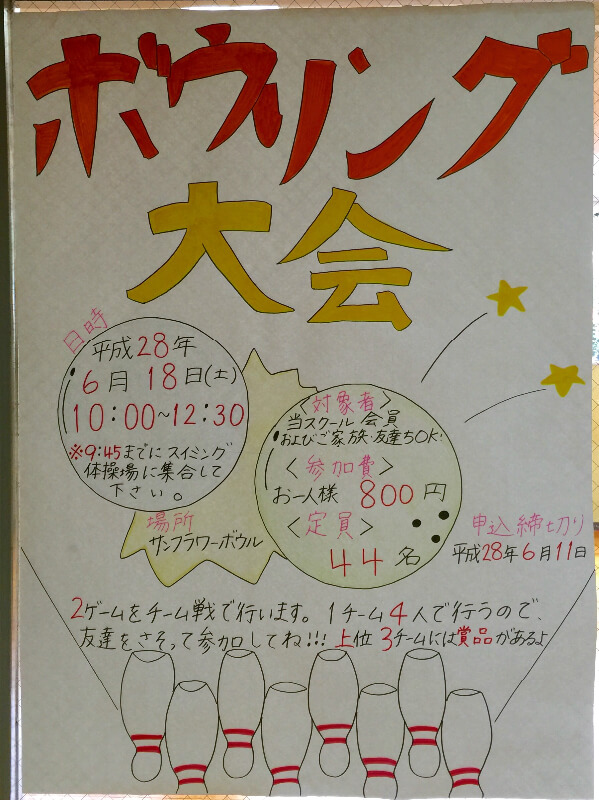 ボウリング
大会
日時
平成28年
6月 18日(土)
10:00~12:30
※9:45までにスイミング
体操場に集合して
下さい。
場所
サンフラワーボウル
<対象者>
当スクール 会員
およびご家族・友達もOK!
<参加費>
お一人様 800円
<定員>
44名
申込締切り
平成28年6月11日
2ゲームをチーム戦で行います。1チーム4人で行うので、
友達をさそって参加してね!!! 上位 3チームには賞品があるよ